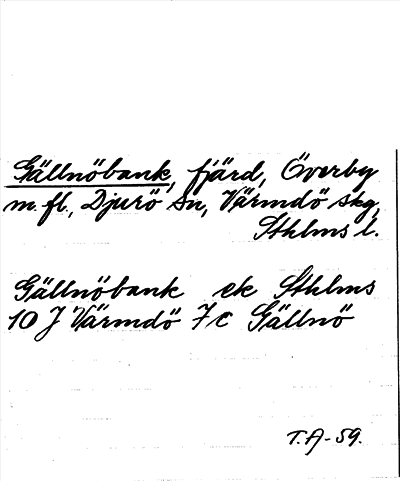 Gällnöbank, fjärd, Överby
m.fl., Djurö sn, Värmdö skg,
Sthlms l.
Gällnöbank ek Sthlms
10 J Värmdö 7c Gällnö
T.A-59.